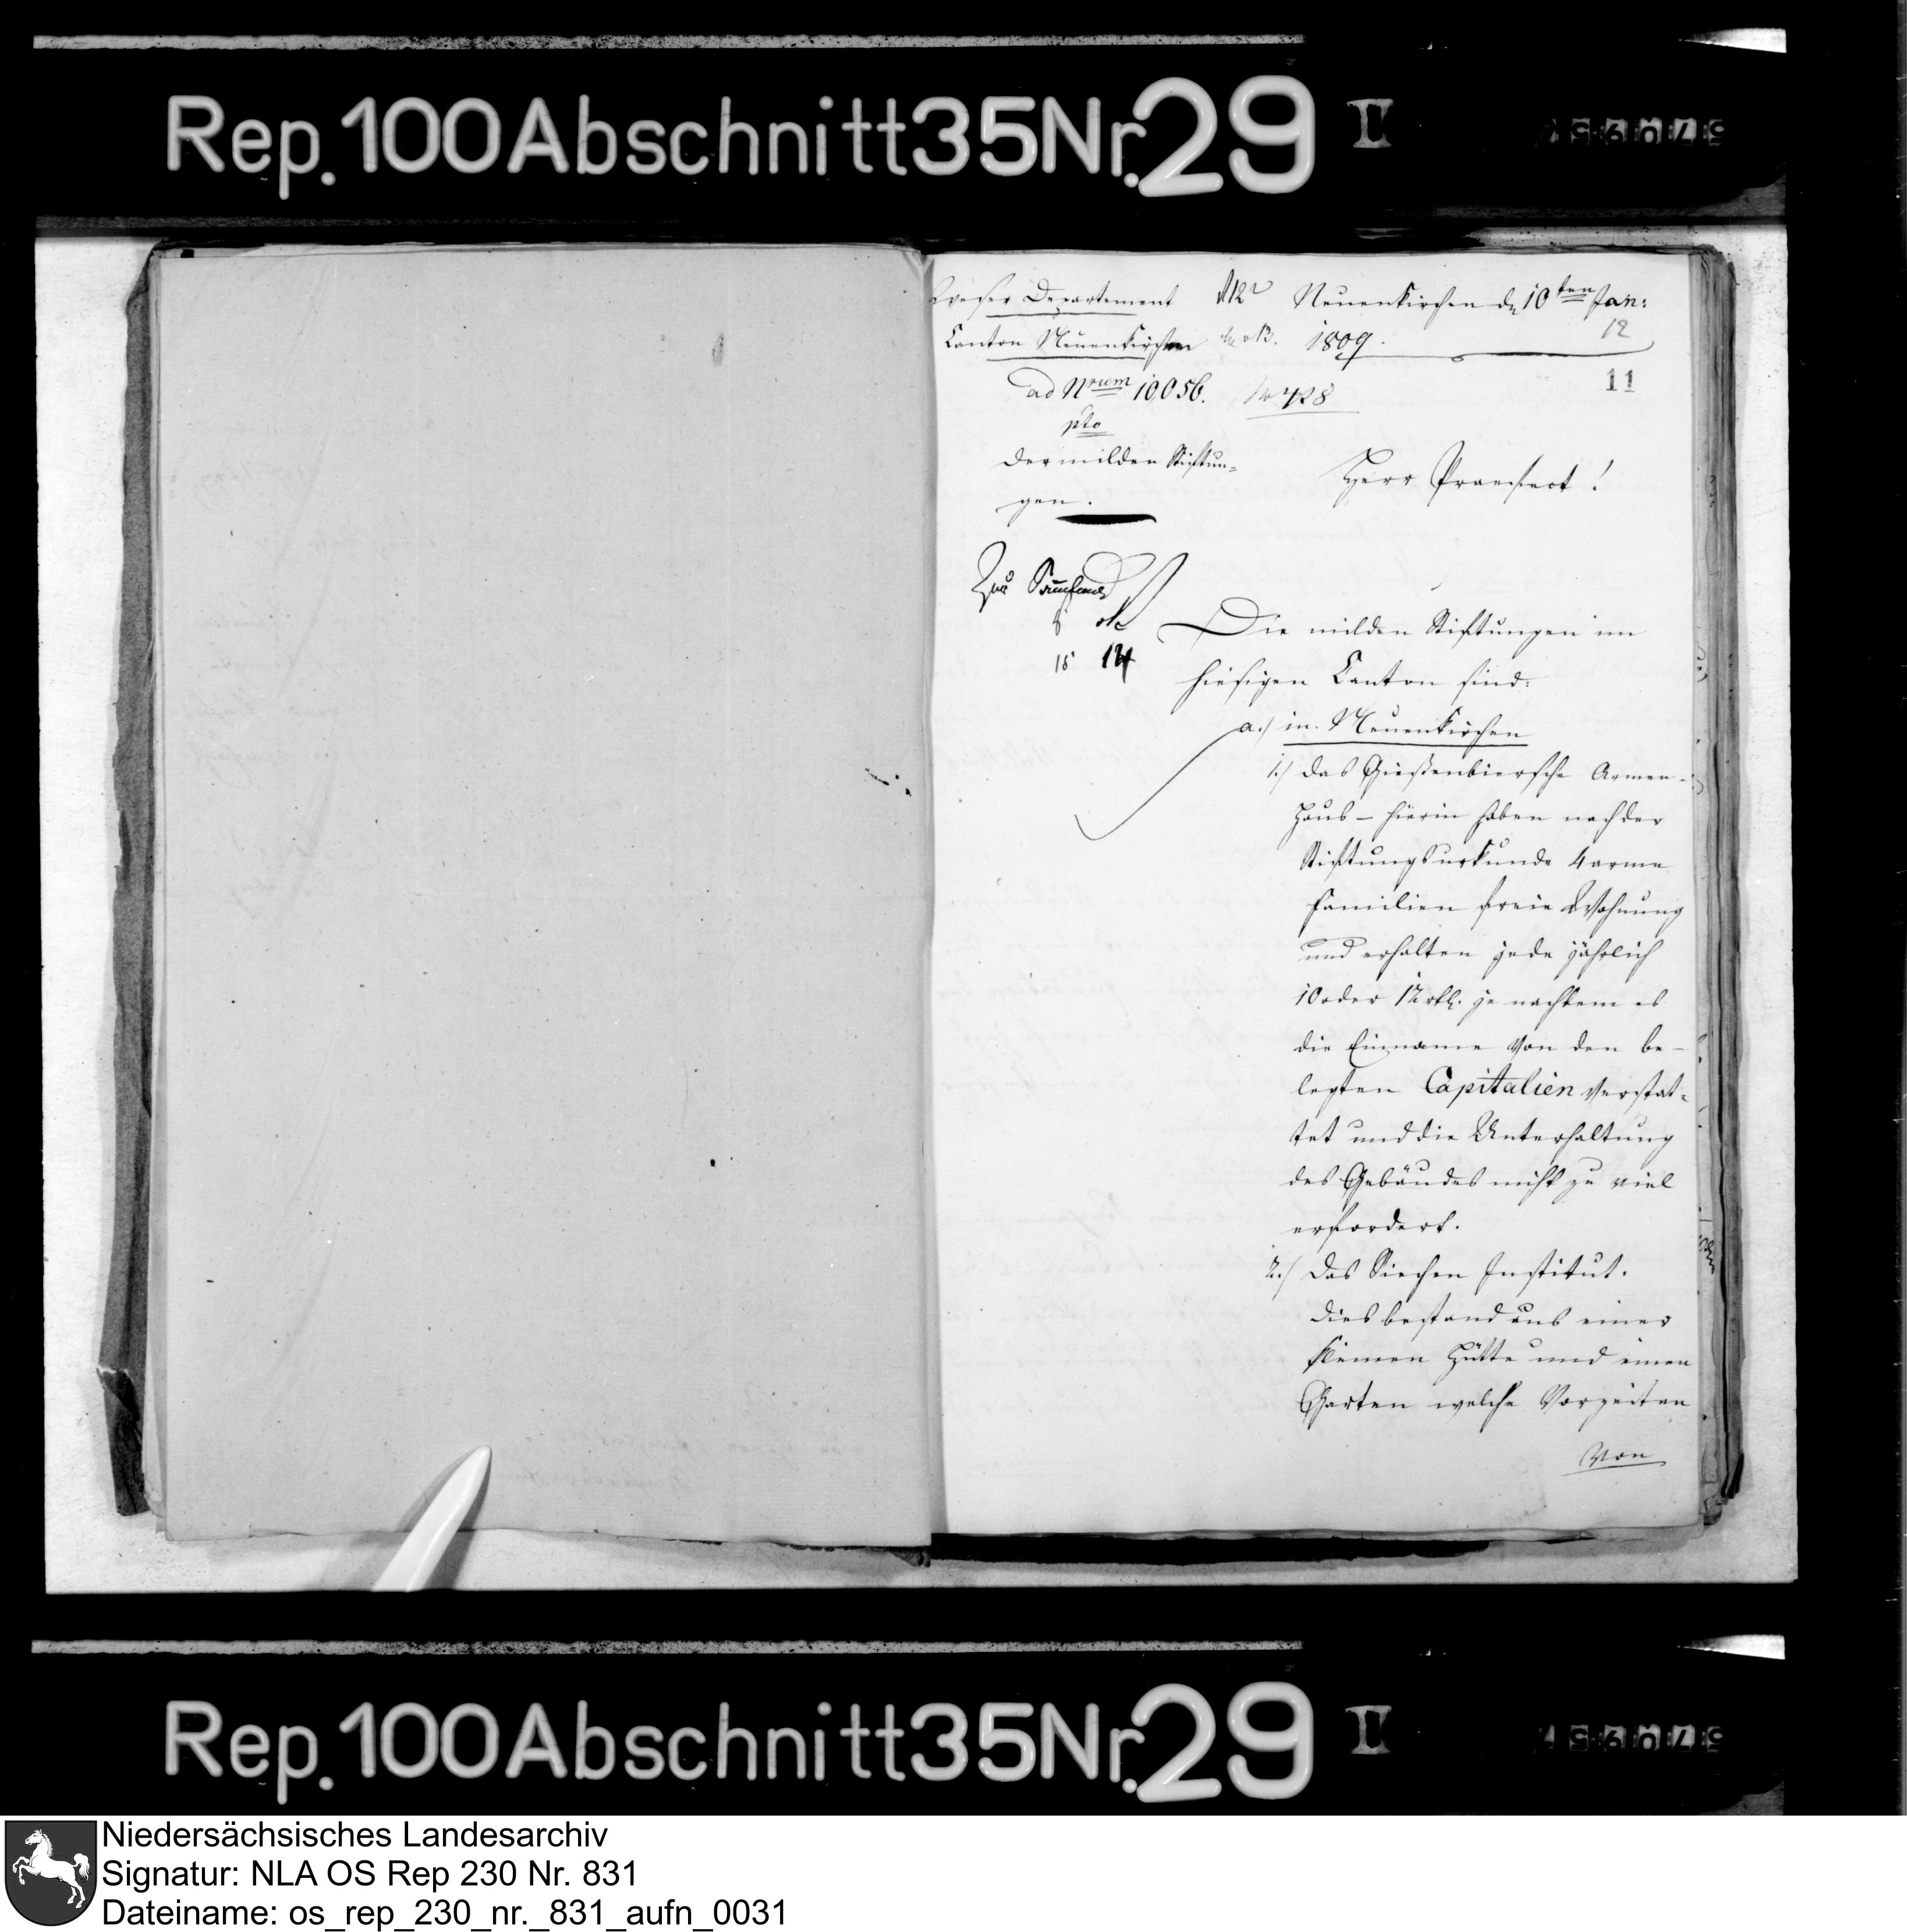 Rep. 100 Abschnitt 35 Nr. 29 II
Weser Departement
Canton Neuenkirchen
Neuenkirchen d 10ten Jan:
1809.
12
11
ad Nrum 10,056.
No 428
pto
der milden Stiftun-
gen.
Herr Praefect!
Zur
Die milden Stiftungen im
hiesigen Canton sind:
a.) in Neuenkirchen
1.) das Gießenbiersche Armen-
haus – hierin haben nach der
Stiftungsurkunde 4 arme
Familien freie Wohnung
und erhalten jede jährlich
10 oder 12 rthl. je nachdem es
die Einname von den be-
legten Capitalien verstat-
tet und die Unterhaltung
des Gebäudes nicht zu viel
erfordert.
2.) das Siechen Institut.
dies bestand aus einer
kleinen Hütte und einen
Garten welche Vorzeiten
von
Rep. 100 Abschnitt 35 Nr. 29 II
Niedersächsisches Landesarchiv
Signatur: NLA OS Rep 230 Nr. 831
Dateiname: os_rep_230_nr._831_aufn_0031